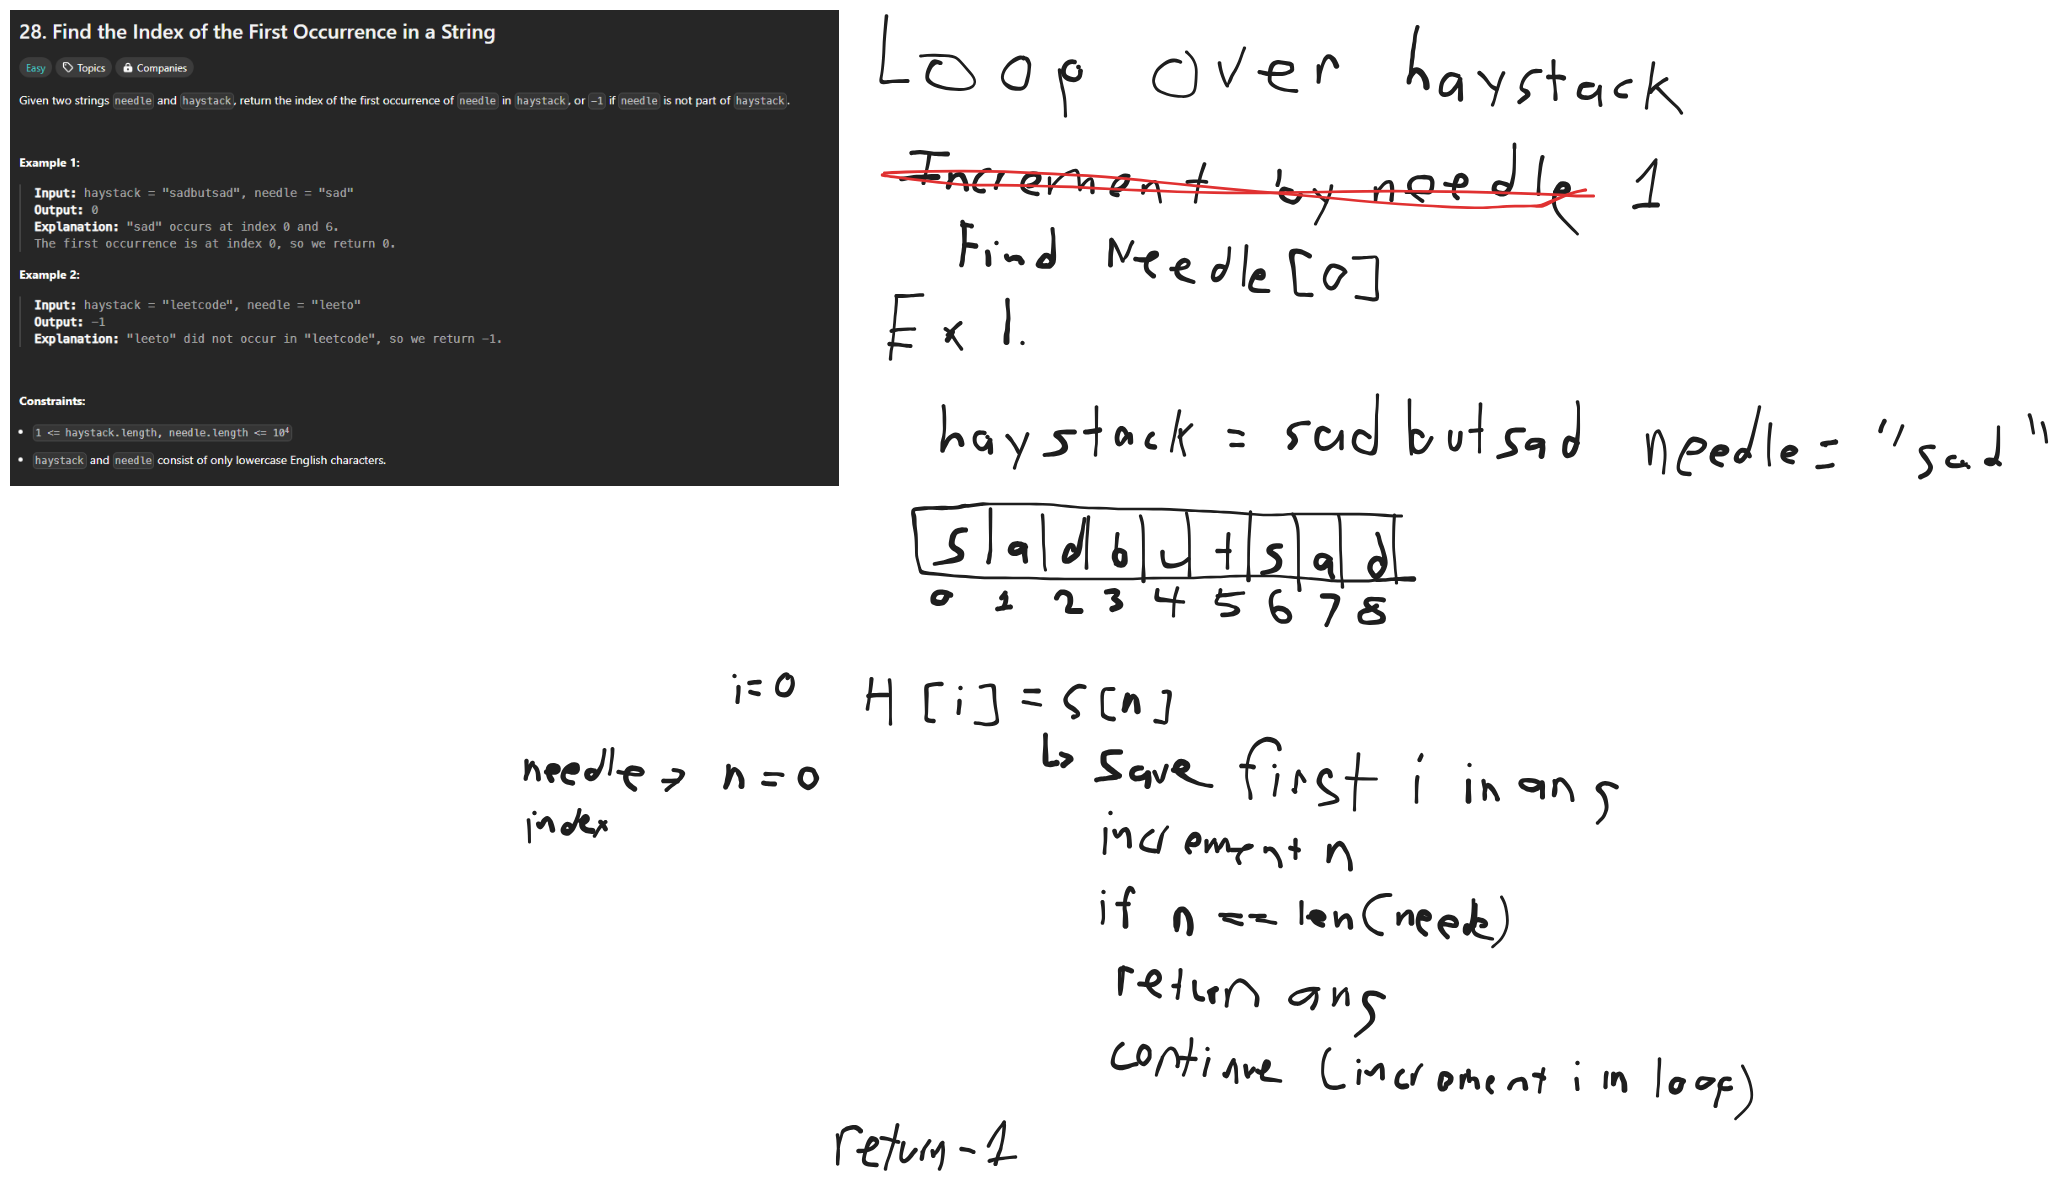 28. Find the Index of the First Occurrence in a String
Easy Topics Companies
Given two strings needle and haystack, return the index of the first occurrence of needle in haystack, or -1 if needle is not part of haystack.
Example 1:
Input: haystack = "sadbutsad", needle = "sad"
Output: 0
Explanation: "sad" occurs at index 0 and 6.
The first occurrence is at index 0, so we return 0.
Example 2:
Input: haystack = "leetcode", needle = "leeto"
Output: -1
Explanation: "leeto" did not occur in "leetcode", so we return -1.
Constraints:
• 1 <= haystack.length, needle.length <= 10⁴
• haystack and needle consist of only lowercase English characters.
Loop over haystack
Increment by needle 1
Find Needle[0]
Ex 1.
haystack = sadbutsad needle = "sad"
s a d b u t s a d
0 1 2 3 4 5 6 7 8
i=0 H[i] = S[n]
needle → n = 0
index
↳ save first i in ans
increment n
if n == len(needle)
return ans
continue (increment i in loop)
return -1